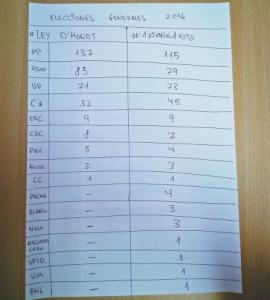 ELECCIONES GENERALES 2016
#LEY D'HONDT #1ESPAÑOL1VOTO
PP 137 115
PSOE 85 79
UP 71 73
C's 32 45
ERC 9 9
CDC 8 7
PNV 5 4
BILDU 2 3
CC 1 1
PACMA - 4
BLANCO - 3
NULO - 3
RECORTES CERO - 1
UPYD - 1
VOX - 1
BNG - 1